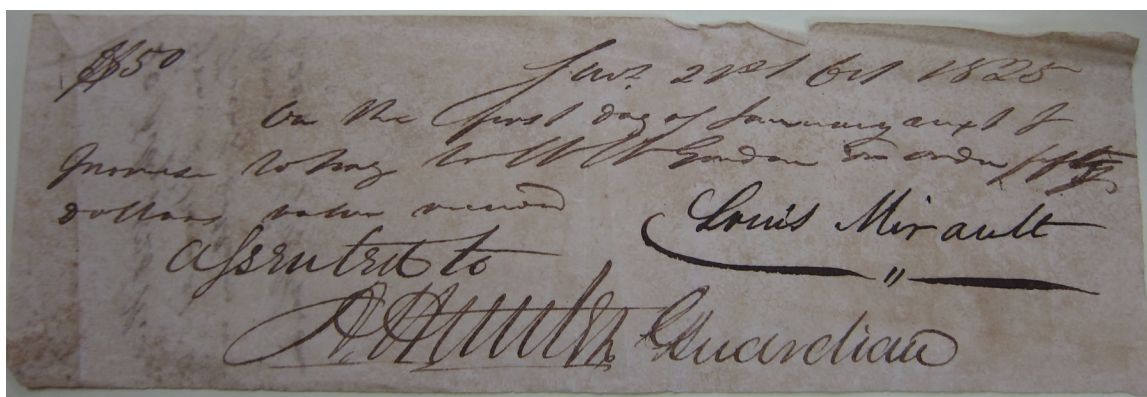 $50 Savh 21st Oct 1825
On the first day of January next I
promise to pay to W W Gordon or order fifty
dollars value received
Louis Mirault
Assented to
A Hunter Guardian